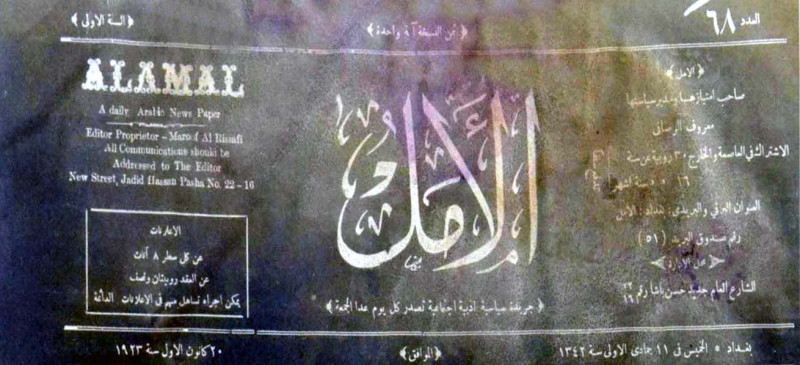 العدد ٦٨
﴿ ثمن النسخة آنة واحدة ﴾
﴿ السنة الاولى ﴾
﴿ الامل ﴾
صاحب امتيازها ومدير سياستها
معروف الرصافى
الاشتراك فى العاصمة والخارج ٣٠ روبية عن سنة
١٦ » » ستة اشهر
العنوان البرقي والبريدي: بغداد: الامل
رقم صندوق البريد (٥١)
﴿ محل الادارة ﴾
الشارع العام جديد حسن باشا رقم ٢٢ ١٦
الأمل
﴿ جريدة سياسية ادبية اجتماعية تصدر كل يوم عدا الجمعة ﴾
ALAMAL
A daily Arabic News Paper
Editor Proprietor - Maroof Al Rissafi
All Communications should be
Addressed to The Editor
New Street, Jadid Hassan Pasha No. 22 - 16
الاعلانات
عن كل سطر ٨ آنات
عن العقد روبيتان ونصف
يمكن اجراء تساهل مهم فى الاعلانات الدائمة
بغداد * الخميس فى ١١ جمادى الاولى سنة ١٣٤٢
﴿الموافق﴾
٢٠ كانون الاول سنة ١٩٢٣